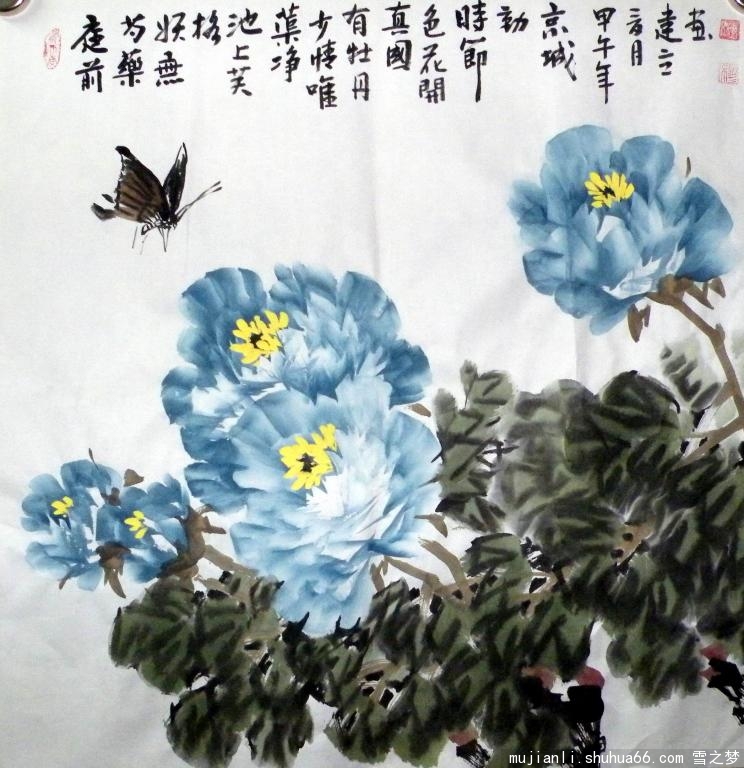 庭前
芍藥
妖無
格
池上芙
蕖净
少情唯
有牡丹
真國
色花開
時節
動
京城
甲午年
月
建立
画
mujianli.shuhua66.com 雪之梦